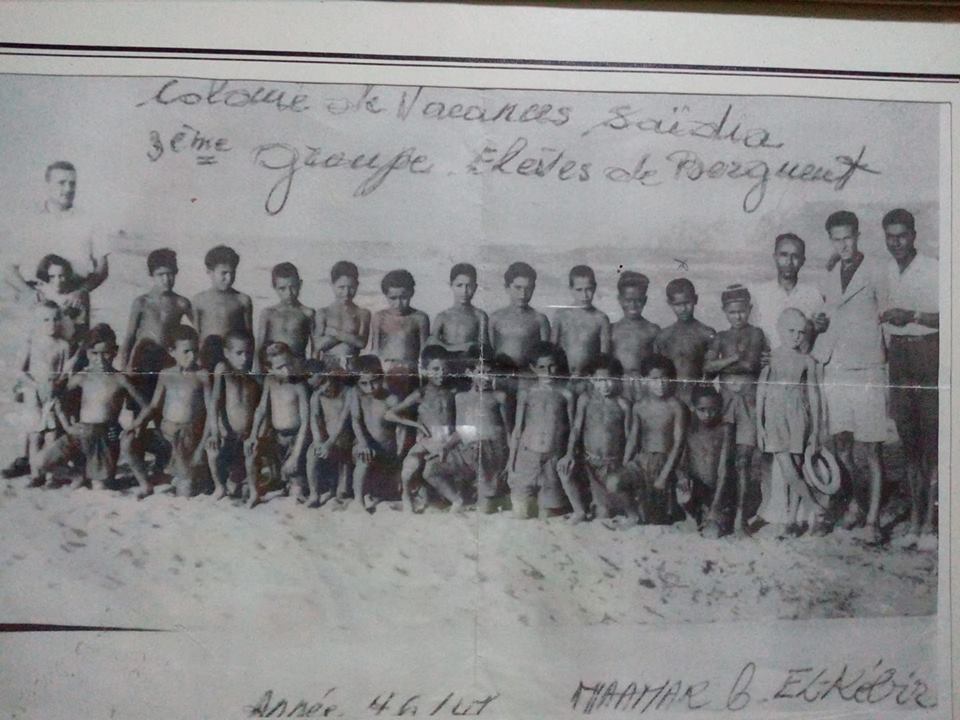 Colonie de Vacances Saïdia
3ème Groupe. Elèves de Berguent
Année 46/47 MAAMAR B. El-Kébir